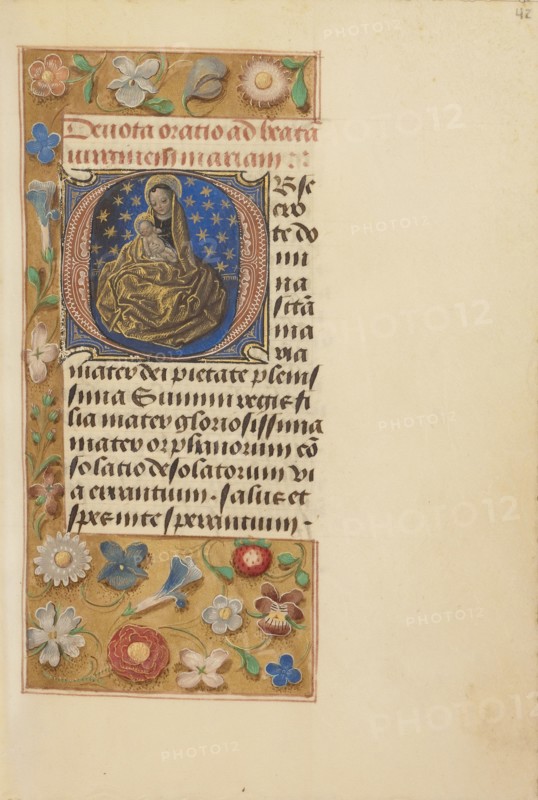 42
Deuota oratio ad beatā
uirginem mariam
Obse
cro
te do
mi
na
sctā
ma
ria
mater dei pietate plenis
sima Summi regis fi
lia mater gloriosissima
mater orphanorum cō
solatio desolatorum vi
a errantium · salus et
spes in te sperantium ·
PHOTO12
PHOTO12
PHOTO12
PHOTO12
PHOTO12
PHOTO12
PHOTO12
PHOTO12
PHOTO12
PHOTO12